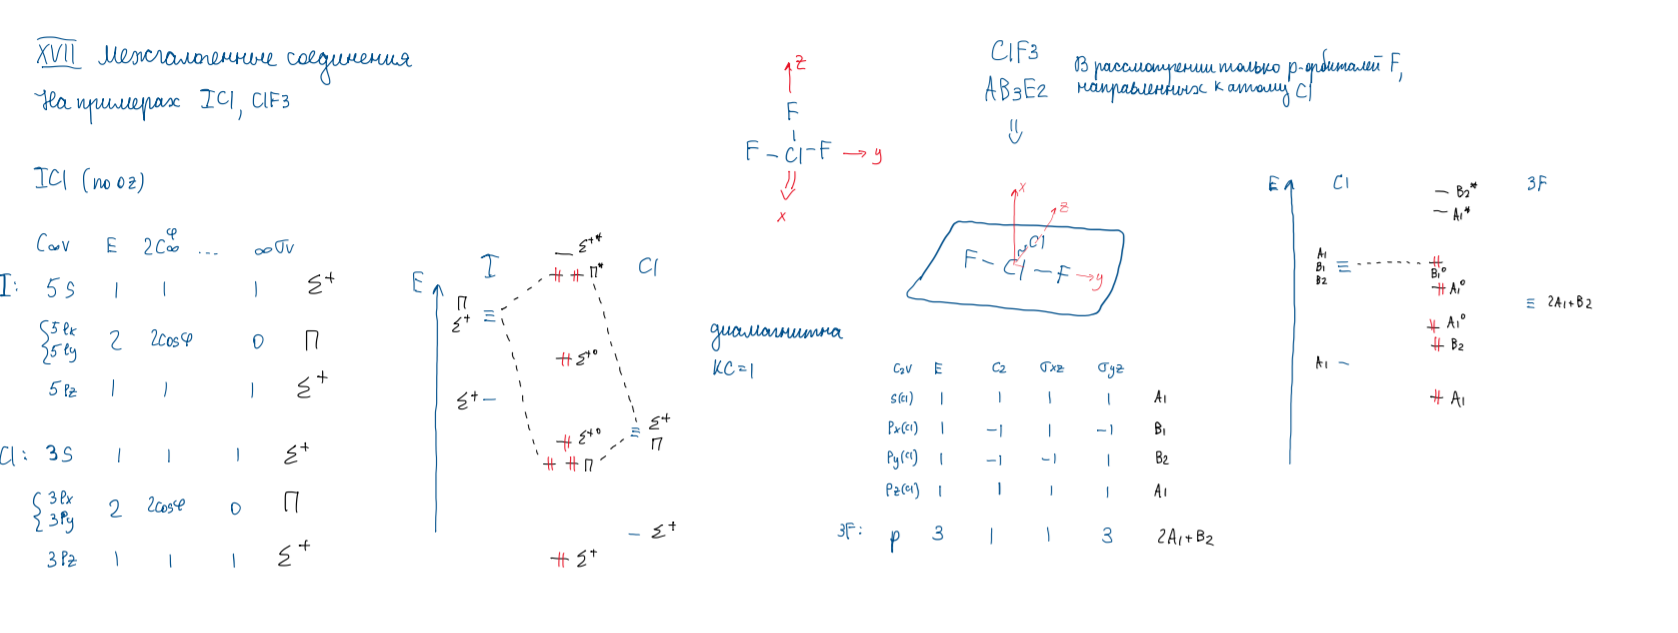 XVII Межгалогенные соединения
На примерах ICl, ClF3
ICl (по oz)
C∞v E 2C∞^φ ... ∞σv
I: 5s 1 1 1 Σ+
{5Px 5Py 2 2cosφ 0 П
5Pz 1 1 1 Σ+
Cl: 3s 1 1 1 Σ+
{3Px 3Py 2 2cosφ 0 П
3Pz 1 1 1 Σ+
E I Cl
Σ+*
П*
П
Σ+
Σ+°
Σ+
Σ+
П
Σ+°
П
Σ+
Σ+
z
F
F – Cl – F → y
x
диамагнитна
КС=1
ClF3
AB3E2
⇓
В рассмотрении только p-орбиталей F,
направленных к атому Cl
x
z
Cl
F – Cl – F → y
C2v E C2 σxz σyz
S(Cl) 1 1 1 1 A1
Px(Cl) 1 -1 1 -1 B1
Py(Cl) 1 -1 -1 1 B2
Pz(Cl) 1 1 1 1 A1
3F: p 3 1 1 3 2A1+B2
E Cl 3F
B2*
A1*
A1
B1
B2
B1°
A1°
2A1+B2
A1°
B2
A1
A1